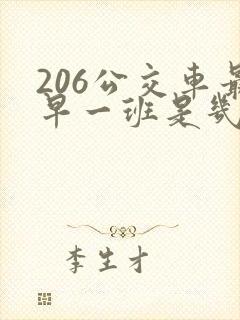 206公交车最
早一班是几
李生才